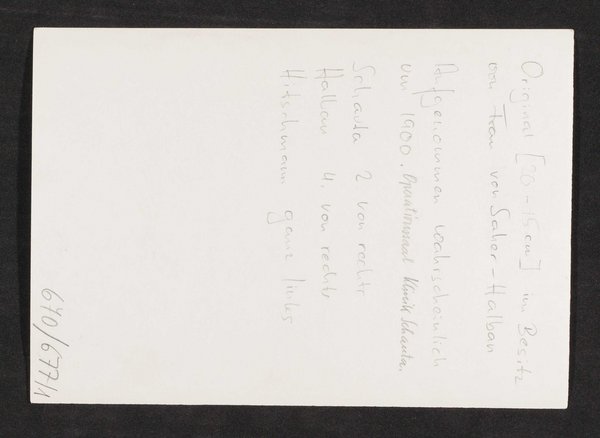 Original [20-15cm] im Besitz
von Frau von Saher-Halban
Aufgenommen wahrscheinlich
um 1900. Operationssaal Klinik Schauta.
Schauta 2. von rechts
Halban 4. von rechts
Hitschmann ganz links
670/677/1